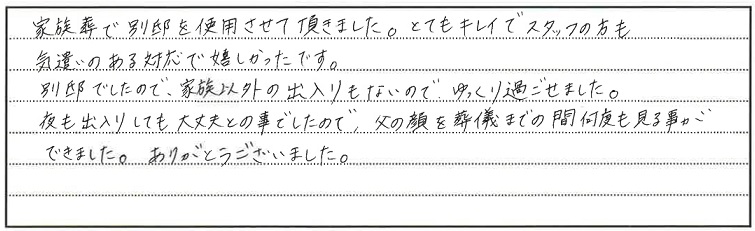 家族葬で別邸を使用させて頂きました。とてもキレイでスタッフの方も
気遣いのある対応で嬉しかったです。
別邸でしたので、家族以外の出入りもないので、ゆっくり過ごせました。
夜も出入りしても大丈夫との事でしたので、父の顔を葬儀までの間何度も見る事が
できました。ありがとうございました。